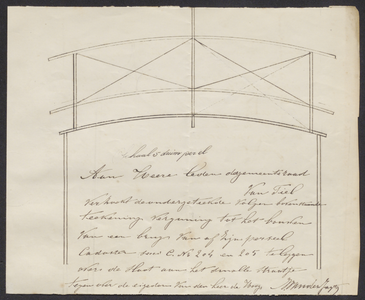 Schaal 5 duim per el
Aan Heeren Leden des gemeenteraad
Van Tiel
Verzoekt de ondergeteekende volgens bovenstaande
teekening Vergunning tot het bouwen
Van een brug Van af Zijn perceel
Cadaster Sectie C. No 204 en 205 te leggen
over de Sloot aan het smalle Straatje
tegen over de eigendom Van den heer de Roog